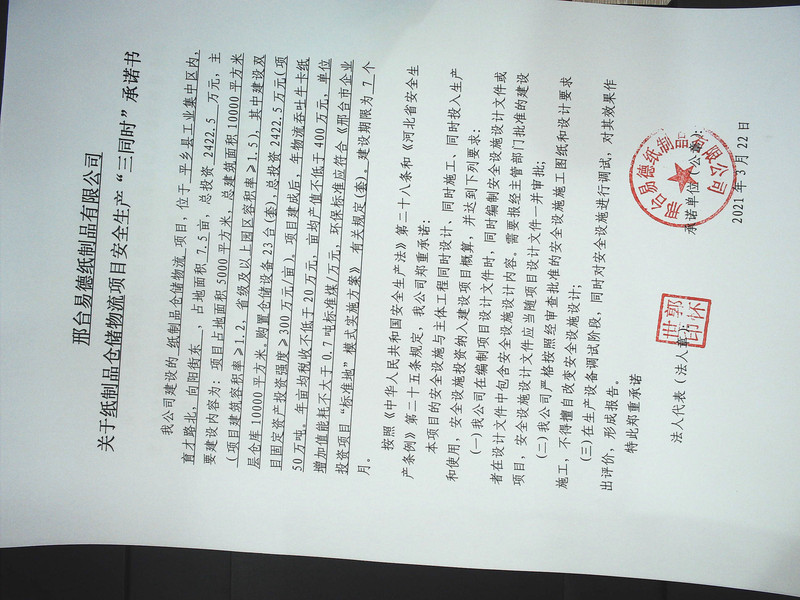 邢台易德纸制品有限公司
关于纸制品仓储物流项目安全生产“三同时”承诺书
我公司建设的 纸制品仓储物流 项目，位于 平乡县工业集中区内，
育才路北，向阳街东 ，占地面积 7.5亩，总投资 2422.5 万元，主
要建设内容为：项目占地面积5000平方米，总建筑面积10000平方米
（项目建筑容积率≥1.2，省级及以上园区容积率≥1.5），其中建设双
层仓库10000平方米，购置仓储设备23台(套)，总投资2422.5万元(项
目固定资产投资强度≥300万元/亩)，项目建成后，年物流吞吐牛卡纸
50万吨。年亩均税收不低于20万元，亩均产值不低于400万元，单位
增加值能耗不大于0.7吨标准煤/万元，环保标准应符合《邢台市企业
投资项目“标准地”模式实施方案》 有关规定(套)。建设期限为 7 个
月。
按照《中华人民共和国安全生产法》第二十八条和《河北省安全生
产条例》第二十五条规定，我公司郑重承诺：
本项目的安全设施与主体工程同时设计，同时施工、同时投入生产
和使用，安全设施投资纳入建设项目概算，并达到下列要求：
(一)我公司在编制项目设计文件时，同时编制安全设施设计文件或
者在设计文件中包含安全设施设计内容。需要报经主管部门批准的建设
项目，安全设施设计文件应当随项目设计文件一并审批；
(二)我公司严格按照经审查批准的安全设施施工图纸和设计要求
施工，不得擅自改变安全设施设计；
(三)在生产设备调试阶段，同时对安全设施进行调试，对其效果作
出评价，形成报告。
特此郑重承诺
承诺单位（公章）：
法人代表（法人章）
郭怀世印
2021年3月22日